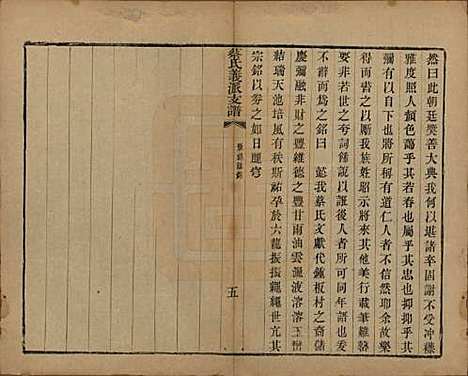 然曰此朝廷獎善大典我何以堪諸辛固謝不受冲穆
雅度照人顏色藹乎其若春也屬乎其貞也抑抑乎其
彌有以自下也將所稱有道仁人者不信然耶余故樂
為之述以賜我族姓昭示將來使其他美行載筆維
要非若世之夸詞餘說以諛後人者所可同年語也故
不辭而為之銘曰 懿我蔡氏文獻代鍾板村之裔儲
慶彌融非財之豐維德之豐甘雨油雲滙液溶溶玉
結瑞天池培風有秩斯祐孕於六龍振振繩繩世亢其
宗銘以券之如日麗穹
蔡氏義派支譜
五